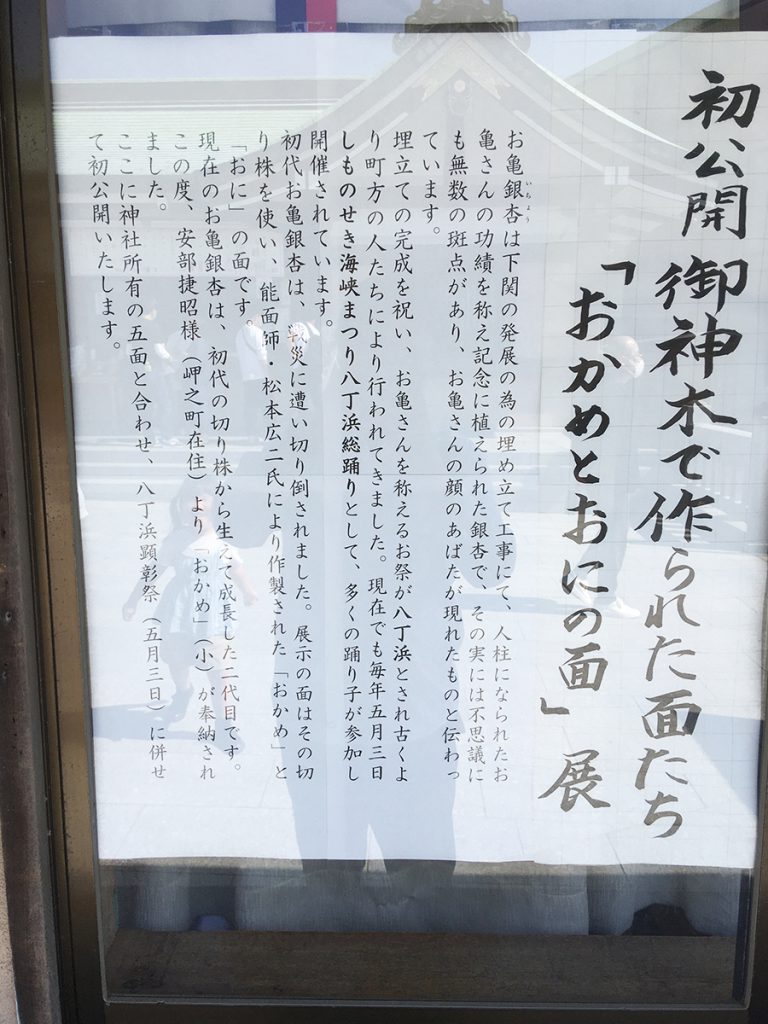 初公開 御神木で作られた面たち
「おかめとおにの面」展
お亀銀杏は下関の発展の為の埋め立て工事にて、人柱になられたお
いちょう
亀さんの功績を称え記念に植えられた銀杏で、その実には不思議に
も無数の斑点があり、お亀さんの顔のあばたが現れたものと伝わっ
ています。
埋立ての完成を祝い、お亀さんを称えるお祭が八丁浜とされ古くよ
り町方の人たちにより行われてきました。現在でも毎年五月三日
しものせき海峡まつり八丁浜総踊りとして、多くの踊り子が参加し
開催されています。
初代お亀銀杏は、戦災に遭い切り倒されました。展示の面はその切
り株を使い、能面師・松本広二氏により作製された「おかめ」と
「おに」の面です。
現在のお亀銀杏は、初代の切り株から生えて成長した二代目です。
この度、安部捷昭様（岬之町在住）より「おかめ」（小）が奉納され
ました。
ここに神社所有の五面と合わせ、八丁浜顕彰祭（五月三日）に併せ
て初公開いたします。